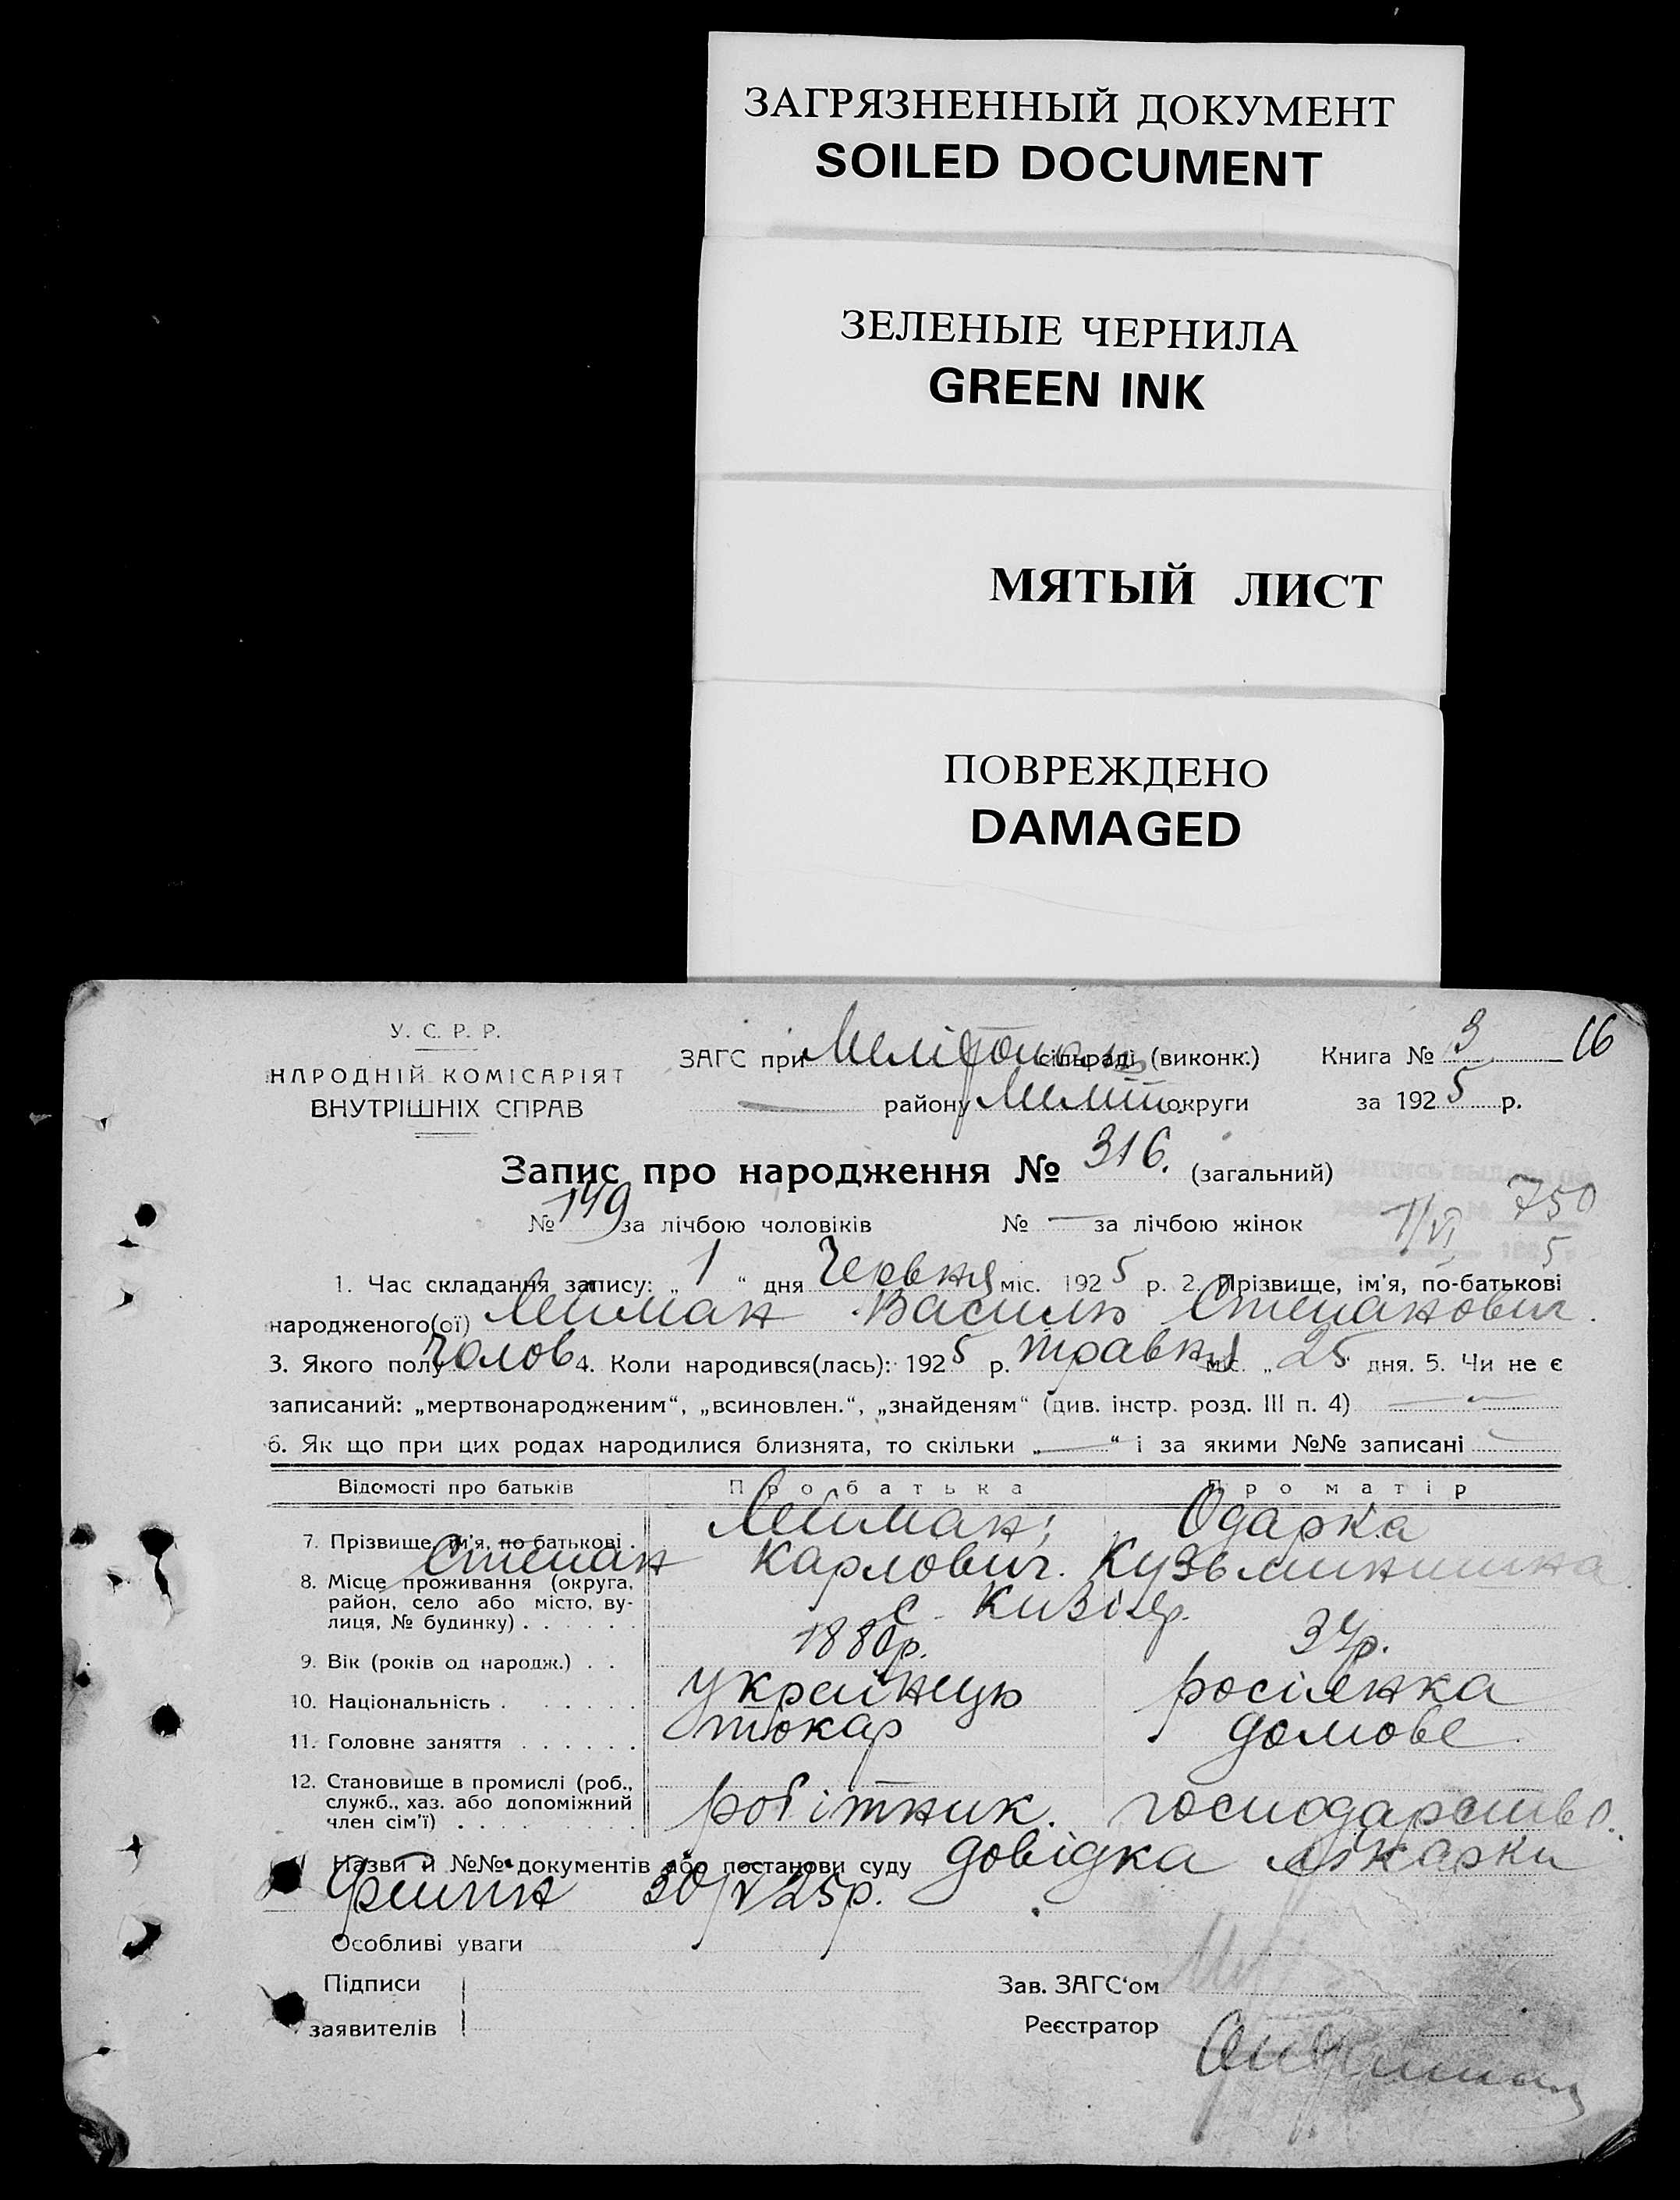 ЗАГРЯЗНЕННЫЙ ДОКУМЕНТ
SOILED DOCUMENT
ЗЕЛЕНЫЕ ЧЕРНИЛА
GREEN INK
МЯТЫЙ ЛИСТ
ПОВРЕЖДЕНО
DAMAGED
У. С. Р. Р.
НАРОДНІЙ КОМІСАРІЯТ
ВНУТРІШНІХ СПРАВ
ЗАГС при сільраді (виконк.) Книга № 3 16
— району Меліт. округи за 1925 р.
Запис про народження № 316. (загальний)
№ 149 за лічбою чоловіків № — за лічбою жінок 1/VI 750
5
1. Час складання запису: „ 1 “ дня Червня міс. 1925 р. 2. Прізвище, ім'я, по-батькові
народженого(ої) Лейман Василь Степанович.
3. Якого полу Чолов 4. Коли народився(лась): 1925 р. травня міс. „ 25 дня. 5. Чи не є
записаний: „мертвонародженим“, „всиновлен.“, „знайденям“ (див. інстр. розд. III п. 4) —
6. Як що при цих родах народилися близнята, то скільки „—“ і за якими №№ записані —
Відомості про батьків Про батька Про матір
7. Прізвище, ім'я, по-батькові . Лейман; Одарка
Степан Карлович. Кузьминишна
8. Місце проживання (округа,
район, село або місто, вулиця, № будинку) . . . . . . с. Кизіяр.
9. Вік (років од народж.) . . 1880р. 34р.
10. Національність . . . . . . Українець росіянка
11. Головне заняття . . . . . . токар домове
12. Становище в промислі (роб.,
служб., хаз. або допоміжний
член сім'ї) . . . . робітник. господарство.
Назви й №№ документів або постанови суду довідка лікарки
30/V 25р.
Особливі уваги
Підписи
заявителів
Зав. ЗАГС'ом
Реєстратор